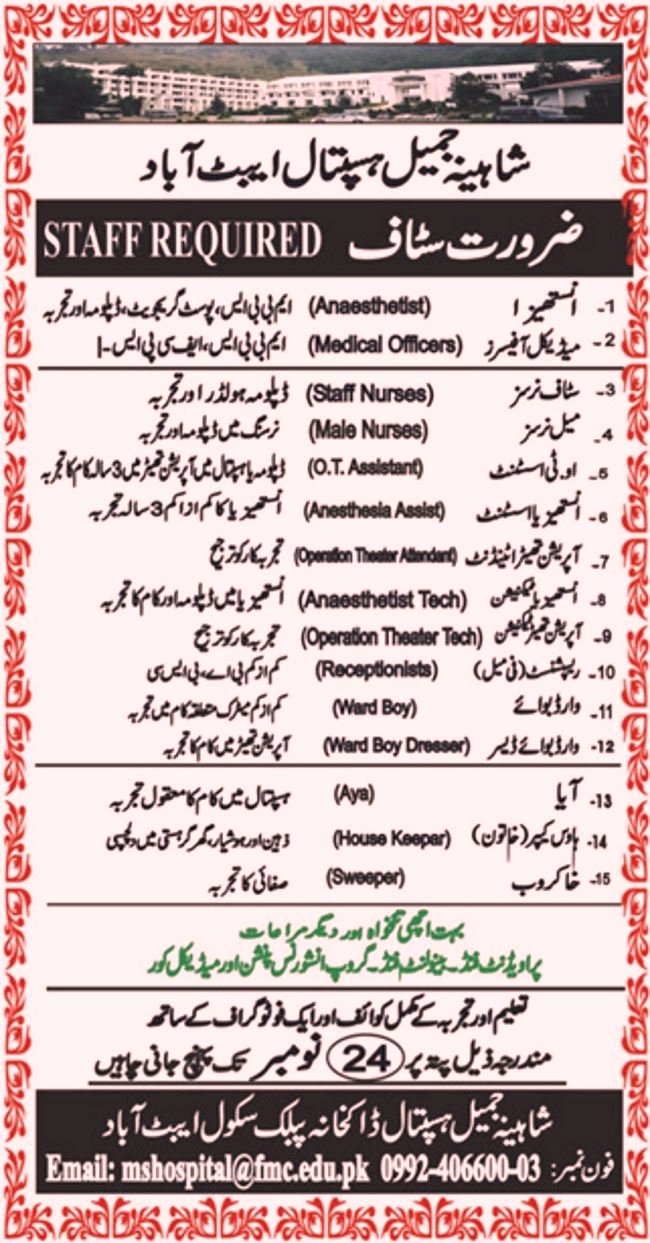 شاہینہ جمیل ہسپتال ایبٹ آباد
ضرورت سٹاف STAFF REQUIRED
1- انستھیزا (Anaesthetist) ایم بی بی ایس، پوسٹ گریجویٹ، ڈپلومہ اور تجربہ
2- میڈیکل آفیسرز (Medical Officers) ایم بی بی ایس، ایف سی پی ایس-I
3- سٹاف نرسز (Staff Nurses) ڈپلومہ ہولڈر اور تجربہ
4- میل نرسز (Male Nurses) نرسنگ میں ڈپلومہ اور تجربہ
5- او.ٹی اسٹنٹ (O.T. Assistant) ڈپلومہ یا ہسپتال میں آپریشن تھیٹر میں 3 سالہ کام کا تجربہ
6- انستھیزیا اسٹنٹ (Anesthesia Assist) انستھیزیا کا کم از کم 3 سالہ تجربہ
7- آپریشن تھیٹر اٹینڈنٹ (Operation Theater Attendant) تجربہ کار کو ترجیح
8- انستھیزیا ٹیکنیشن (Anaesthetist Tech) انستھیزیا میں ڈپلومہ اور کام کا تجربہ
9- آپریشن تھیٹر ٹیکنیشن (Operation Theater Tech) تجربہ کار کو ترجیح
10- ریپشنٹ (فی میل) (Receptionists) کم از کم بی اے، بی ایس سی
11- وارڈ بوائے (Ward Boy) کم از کم میٹرک متعلقہ کام میں تجربہ
12- وارڈ بوائے ڈیسر (Ward Boy Dresser) آپریشن تھیٹر میں کام کا تجربہ
13- آیا (Aya) ہسپتال میں کام کا معقول تجربہ
14- ہاؤس کیپر (خاتون) (House Keepar) ذہین اور ہوشیار، گھر گرہستی میں دلچسپی
15- خاکروب (Sweeper) صفائی کا تجربہ
بہت اچھی تنخواہ اور دیگر مراعات
پراویڈنٹ فنڈ۔ بینولنٹ فنڈ۔ گروپ انشورنس پنشن اور میڈیکل کور
تعلیم اور تجربہ کے مکمل کوائف اور ایک فوٹو گراف کے ساتھ
مندرجہ ذیل پتہ پر 24 نومبر تک پہنچ جانی چاہیں
شاہینہ جمیل ہسپتال ڈاکخانہ پبلک سکول ایبٹ آباد
فون نمبر: 0992-406600-03 Email: mshospital@fmc.edu.pk